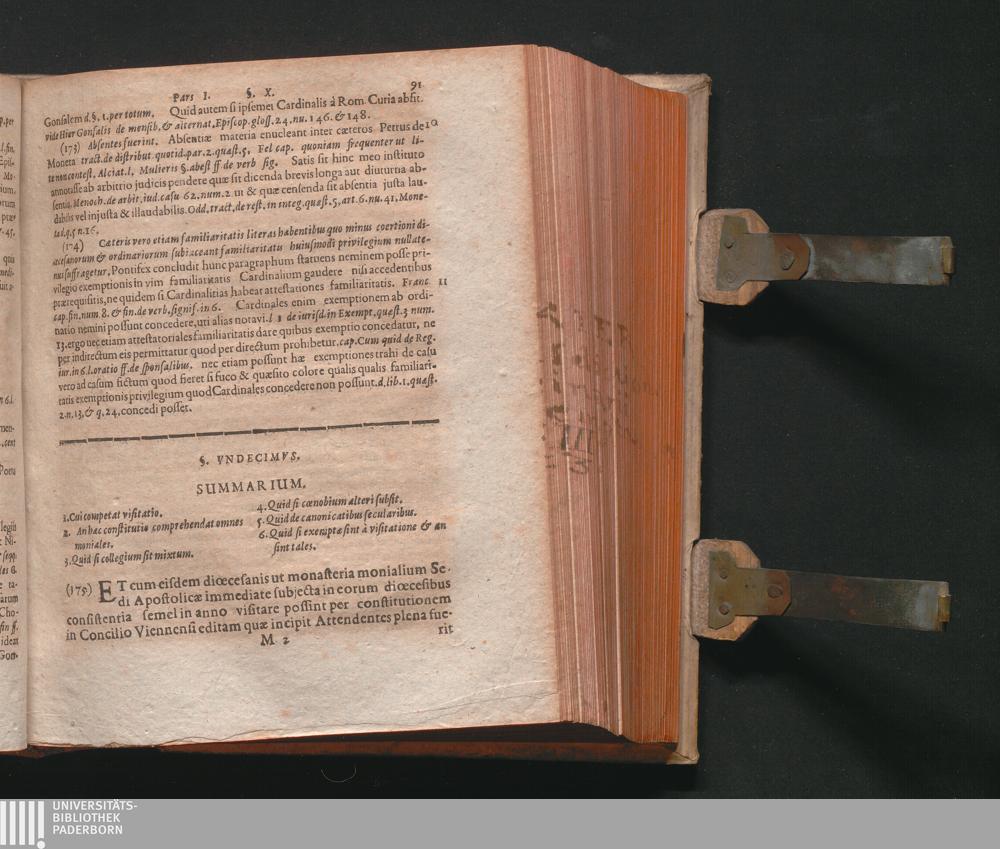 Pars I. §. X. 91
Gonsalem d. §, 1. per totum. Quid autem si ipsemet Cardinalis à Rom. Curia absit.
vide Hier Gonsalis de mensib. & alternat. Episcop. gloss. 24. nu. 146. & 148.
(173) Absentes fuerint. Absentiæ materia enucleant inter cæteros Petrus de 10
Moneta tract. de distribut. quotid. par. 2. quæst. 5. Fel cap. quoniam frequenter ut li-
te non contest. Alciat. l. Mulieris §. abest ff de verb sig. Satis sit hinc meo instituto
annotasse ab arbitrio judicis pendere quæ sit dicenda brevis longa aut diuturna ab-
sentia. Menoch. de arbit. iud. casu 62. num. 2 ut & quæ censenda sit absentia justa lau-
dabilis vel injusta & illaudabilis. Odd. tract. de rest. in integ. quæst. 5. art. 6. nu. 41. Mone-
ta d. q. 5 n. 16.
(174) Cæteris vero etiam familiaritatis literas habentibus quo minus coertioni di-
œcesanorum & ordinariorum subiaceant familiaritatus huiusmodi privilegium nullate-
nus suffragetur. Pontifex concludit hunc paragraphum statuens neminem posse pri-
vilegio exemptionis in vim familiaritatis Cardinalium gaudere nisi accedentibus
prærequisitis, ne quidem si Cardinalitias habeat attestationes familiaritatis. Franc 11
cap. fin. num. 8. & fin. de verb. signif. in 6. Cardinales enim exemptionem ab ordi-
natio nemini possunt concedere, uti alias notavi. l 1 de iurisd. in Exempt. quæst. 3 num.
13. ergo nec etiam attestatoriales familiaritatis dare quibus exemptio concedatur, ne
per indirectum eis permittatur quod per directum prohibetur. cap. Cum quid de Reg.
iur. in 6. l. oratio ff. de sponsalibus. nec etiam possunt hæ exemptiones trahi de casu
vero ad casum fictum quod fieret si fuco & quæsito colore qualis qualis familiari-
tatis exemptionis privilegium quod Cardinales concedere non possunt. d. lib. 1. quæst.
2. n. 13. & q. 24. concedi posset.
§. VNDECIMVS.
SUMMARIUM.
1. Cui competat visitatio.
2. An hac constitutio comprehendat omnes
moniales.
3. Quid si collegium sit mixtum.
4. Quid si cœnobium alteri subsit.
5. Quid de canonicatibus secularibus.
6. Quid si exemptæ sint à visitatione & an
sint tales.
(175) ET cum eisdem diœcesanis ut monasteria monialium Se-
di Apostolicæ immediate subjecta in eorum diœcesibus
consistentia semel in anno visitare possint per constitutionem
in Concilio Viennensi editam quæ incipit Attendentes plena fue-
M 2 rit
UNIVERSITÄTS-
BIBLIOTHEK
PADERBORN